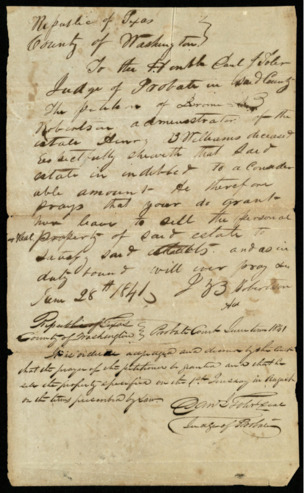 Republic of Texas
County of Washington
To the Honble
Judge of Probate in said County
The petition of Jerome B
Robertson administrator of the
estate Henry B Williams deceased
respectfully sheweth that said
estate is indebted to a consider
able amount He therefore
prays that your do grant
him leave to sell the personal
& real property of said estate to
satisfy said debts and as in
duty bound will ever pray &c
June 28th 1841 J B Robertson
Adr
Republic of Texas
County of Washington Probate Court June term 1841
It is ordered adjudged and decreed by the court
that the prayer of the petitioner be granted and that he
sell the property specified on the Tuesday in August
on the terms prescribed by Law
Judge of Probate